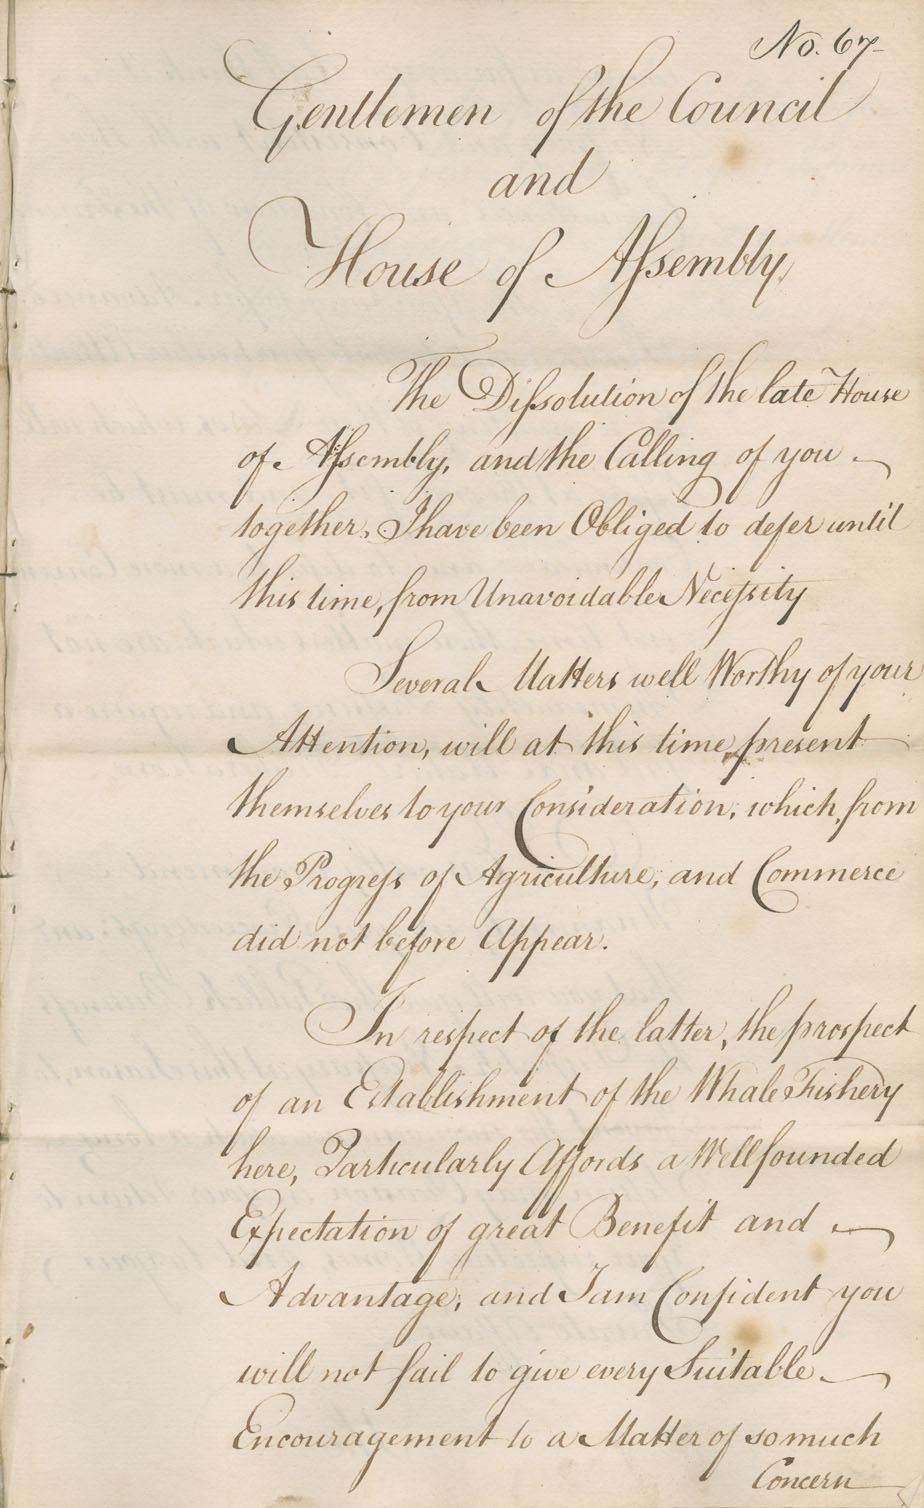 No. 67
Gentlemen of the Council
and
House of Aſsembly,
The Diſsolution of the late House
of Aſsembly, and the Calling of you
together, I have been Obliged to defer until
this time, from Unavoidable Neceſsity
Several Matters well Worthy of your
Attention, will at this time present
themselves to your Consideration, which, from
the Progreſs of Agriculture, and Commerce
did not before Appear.
In respect of the latter, the prospect
of an Establishment of the Whale Fishery
here, Particularly Affords a Well founded
Expectation of great Benefit and
Advantage; and I am Confident you
will not fail to give every Suitable
Encouragement to a Matter of so much
Concern